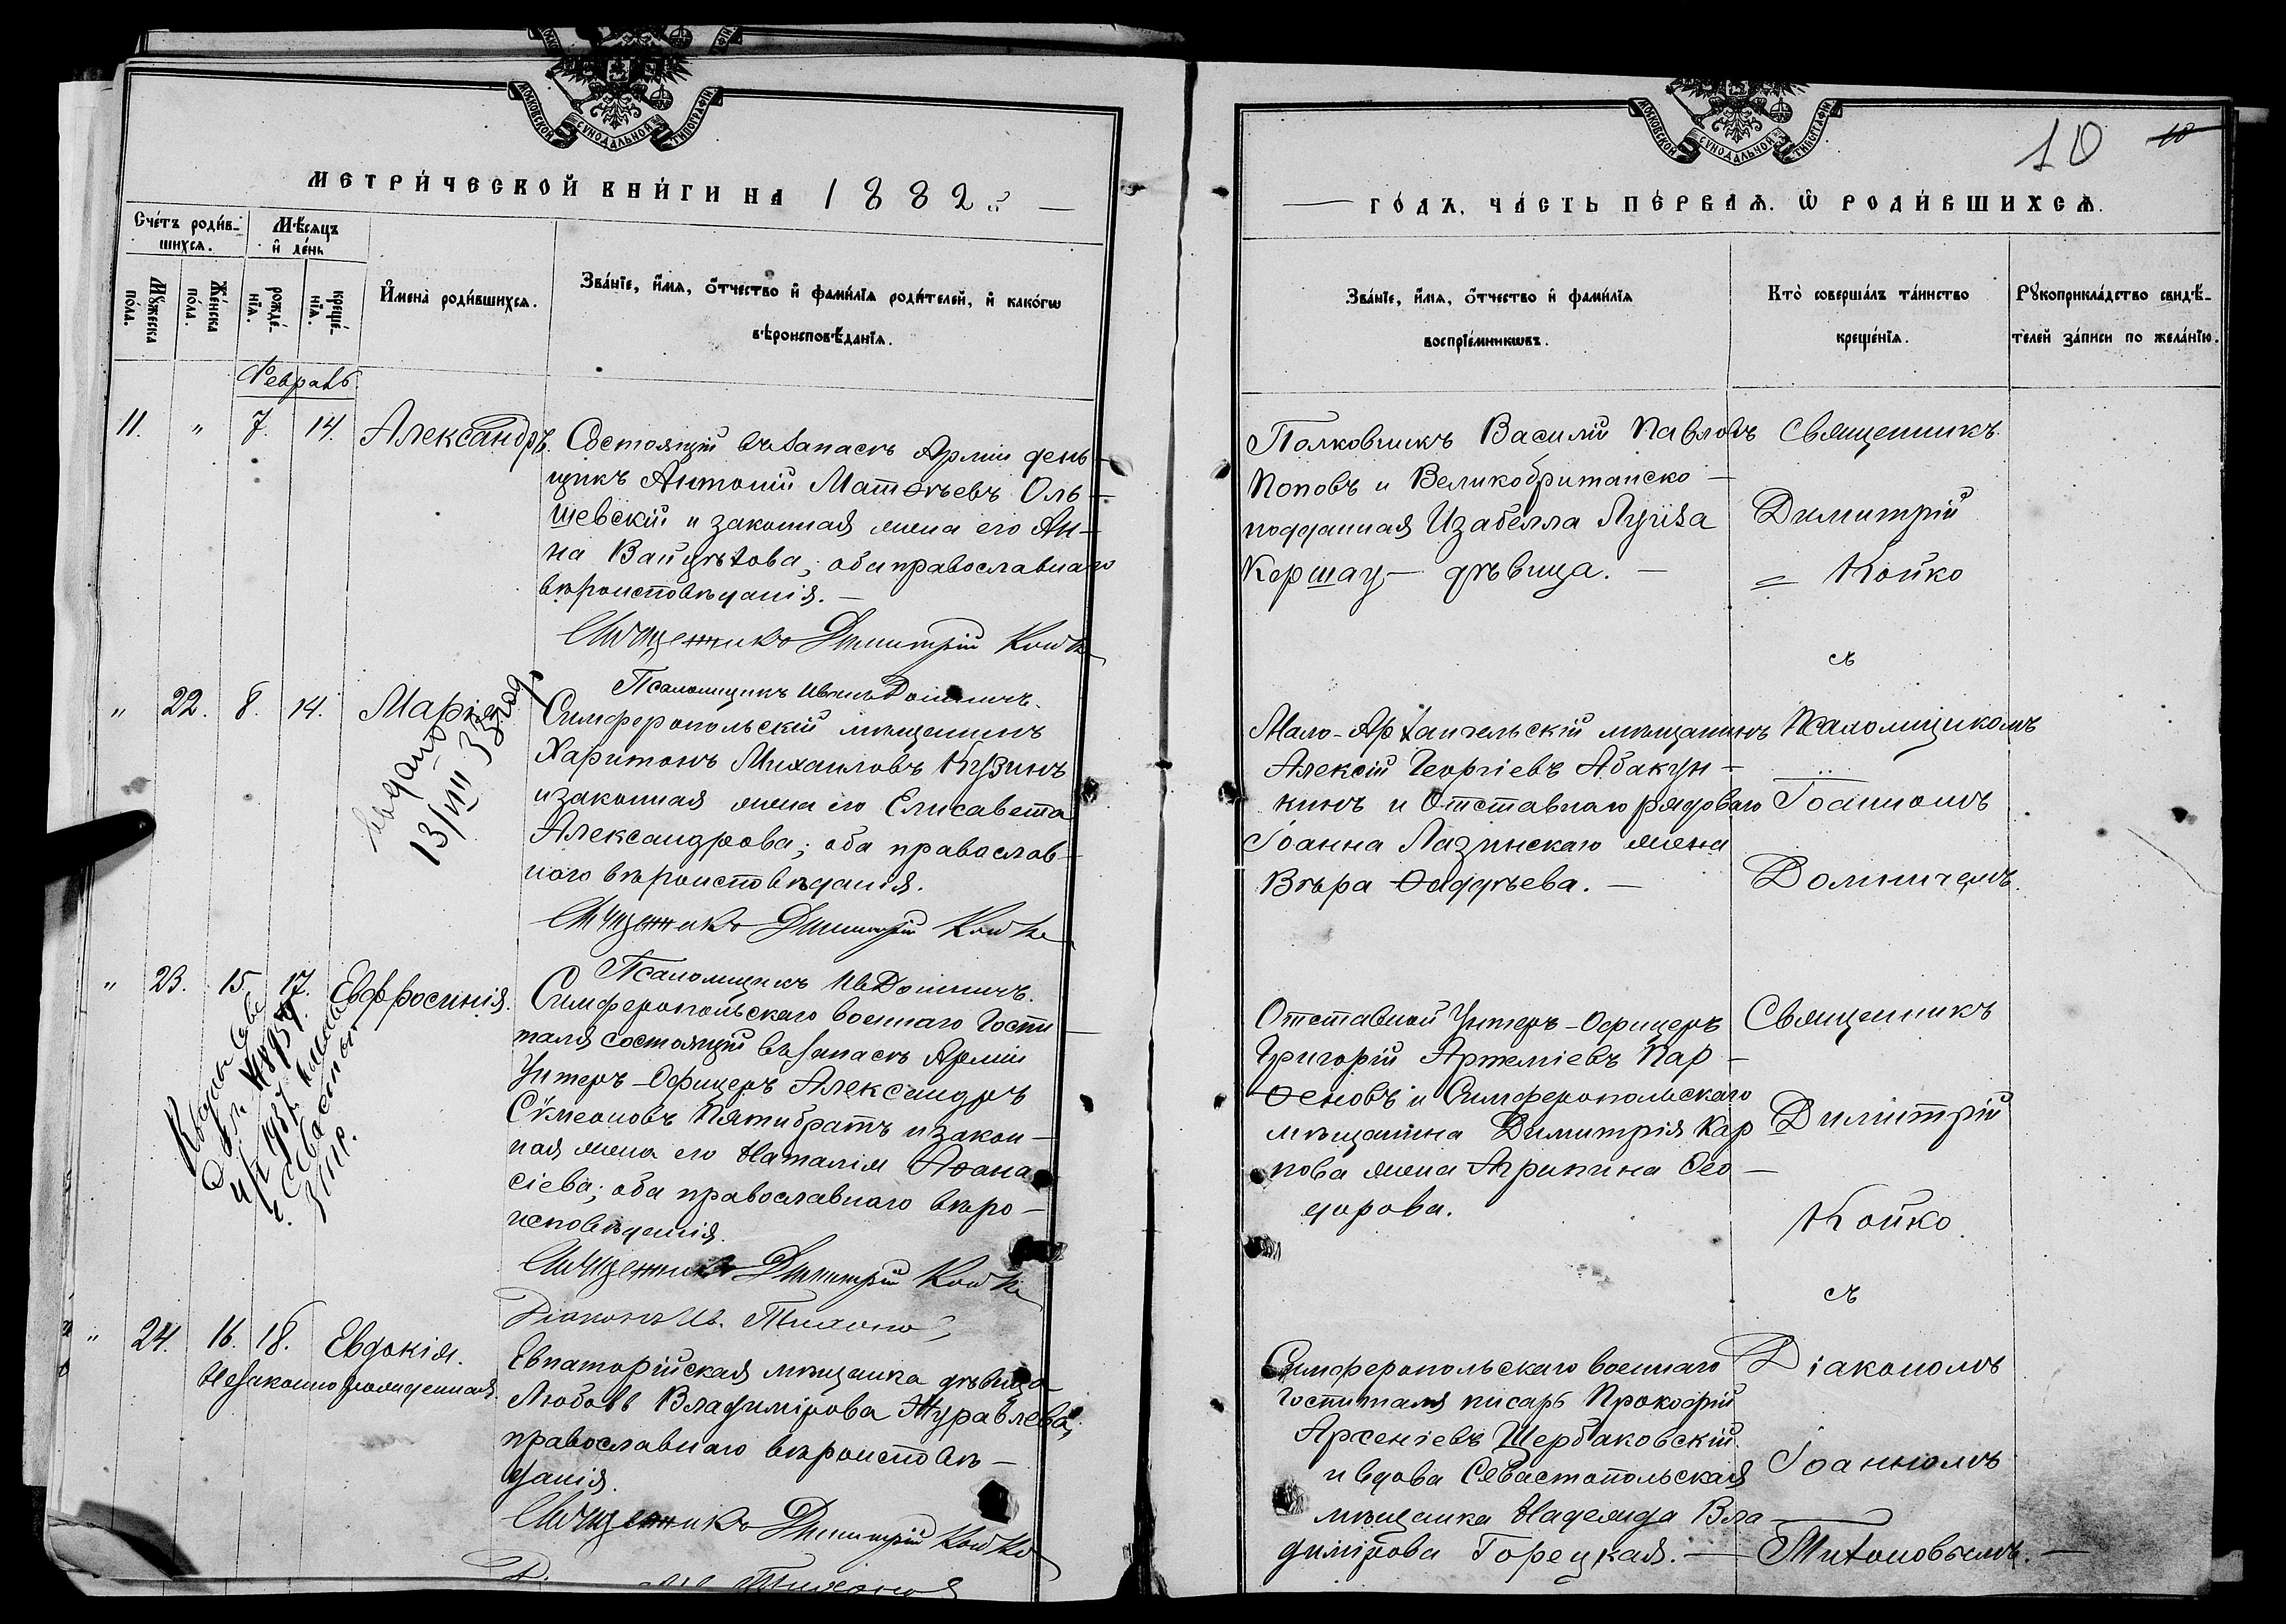 МОСКОВСКОЙ СУНОДАЛЬНОЙ ТИПОГРАФІИ
МЕТРИ́ЧЕСКОЙ КНИ́ГИ НА 1882 й
Сче́тъ роди́в-
шихсѧ.
Мѣ́сѧцъ
и҆ де́нь
Мꙋ́жеска
по́ла.
Же́нска
по́ла.
рожде́-
нїѧ.
креще́-
нїѧ.
И҆мена̀ роди́вшихсѧ.
Зва́нїе, и҆́мѧ, ѻ҆́тчество и҆ фами́лїѧ роди́телей, и҆ како́гѡ
вѣроисповѣ́данїѧ.
Февраль
11. " 7. 14. Александръ.
Состоящій въ запасѣ Арміи день-
щикъ Антоній Матѳѣевъ Оль-
шевскій и законная жена его Ан-
на Вайцехова; оба православнаго
вѣроисповѣданія. —
Священникъ Димитрій Койко
Псаломщикъ Иванъ Домничъ.
" 22. 8. 14. Марія
13/VIII 33 год
Симферопольскій мѣщанинъ
Харитонъ Михаиловъ Кузинъ
и законная жена его Елисавета
Александрова; оба православ-
наго вѣроисповѣданія.
Священникъ Димитрій Койко
Псаломщикъ Ив Домничъ.
" 23. 15. 17. Евфросинія.
Симферопольскаго военнаго Госпи-
таля состоящій въ запасѣ Арміи
Унтеръ-Офицеръ Александръ
Сѵмеоновъ Пятибратъ и закон-
ная жена его Наталія Аѳана-
сіева; оба православнаго вѣро-
исповѣданія.
Священникъ Димитрій Койко
Діаконъ Ив. Тихоновъ
" 24. 16. 18. Евдокія.
Незаконнорожденная.
Евпаторійская мѣщанка дѣвица
Любовь Владимірова Журавлева,
православнаго вѣроисповѣ-
данія.
Священникъ Димитрій Койко
МОСКОВСКОЙ СУНОДАЛЬНОЙ ТИПОГРАФІИ
10 10
ГО́ДЪ, ЧА́СТЬ ПЕ́РВАѦ. Ѽ РОДИ́ВШИХСѦ.
Зва́нїе, и҆́мѧ, ѻ҆́тчество и҆ фами́лїѧ
воспрїе́мникѡвъ.
Кто̀ соверша́лъ та́инство
креще́нїѧ.
Рꙋкоприкла́дство свидѣ́-
телей за́писи по жела́нїю.
Полковникъ Василій Павловъ
Поповъ и Великобританско-
подданная Изабелла Луиза
Кершау — дѣвица. —
Священникъ
Димитрій
= Койко
съ
Мало-Архангельскій мѣщанинъ
Алексій Георгіевъ Абакун-
кинъ и Отставнаго рядоваго
Іоанна Лазинскаго жена
Вѣра Ѳаддѣева. —
Псаломщикомъ
Іоанномъ
Домничемъ.
Отставной Унтеръ-Офицеръ
Григорій Артеміевъ Пар-
ѳеновъ и Симферопольскаго
мѣщанина Димитрія Кар
пова жена Агрипина Ѳео-
дорова.
Священникъ
Димитрій
Койко.
съ
Симферопольскаго военнаго
Госпиталя писарь Прокофій
Арсеніевъ Щербаковскій
и вдова Севастопольская
мѣщанка Надежда Вла
димірова Горецкая. —
Діакономъ
Іоанномъ
Тихоновымъ. —